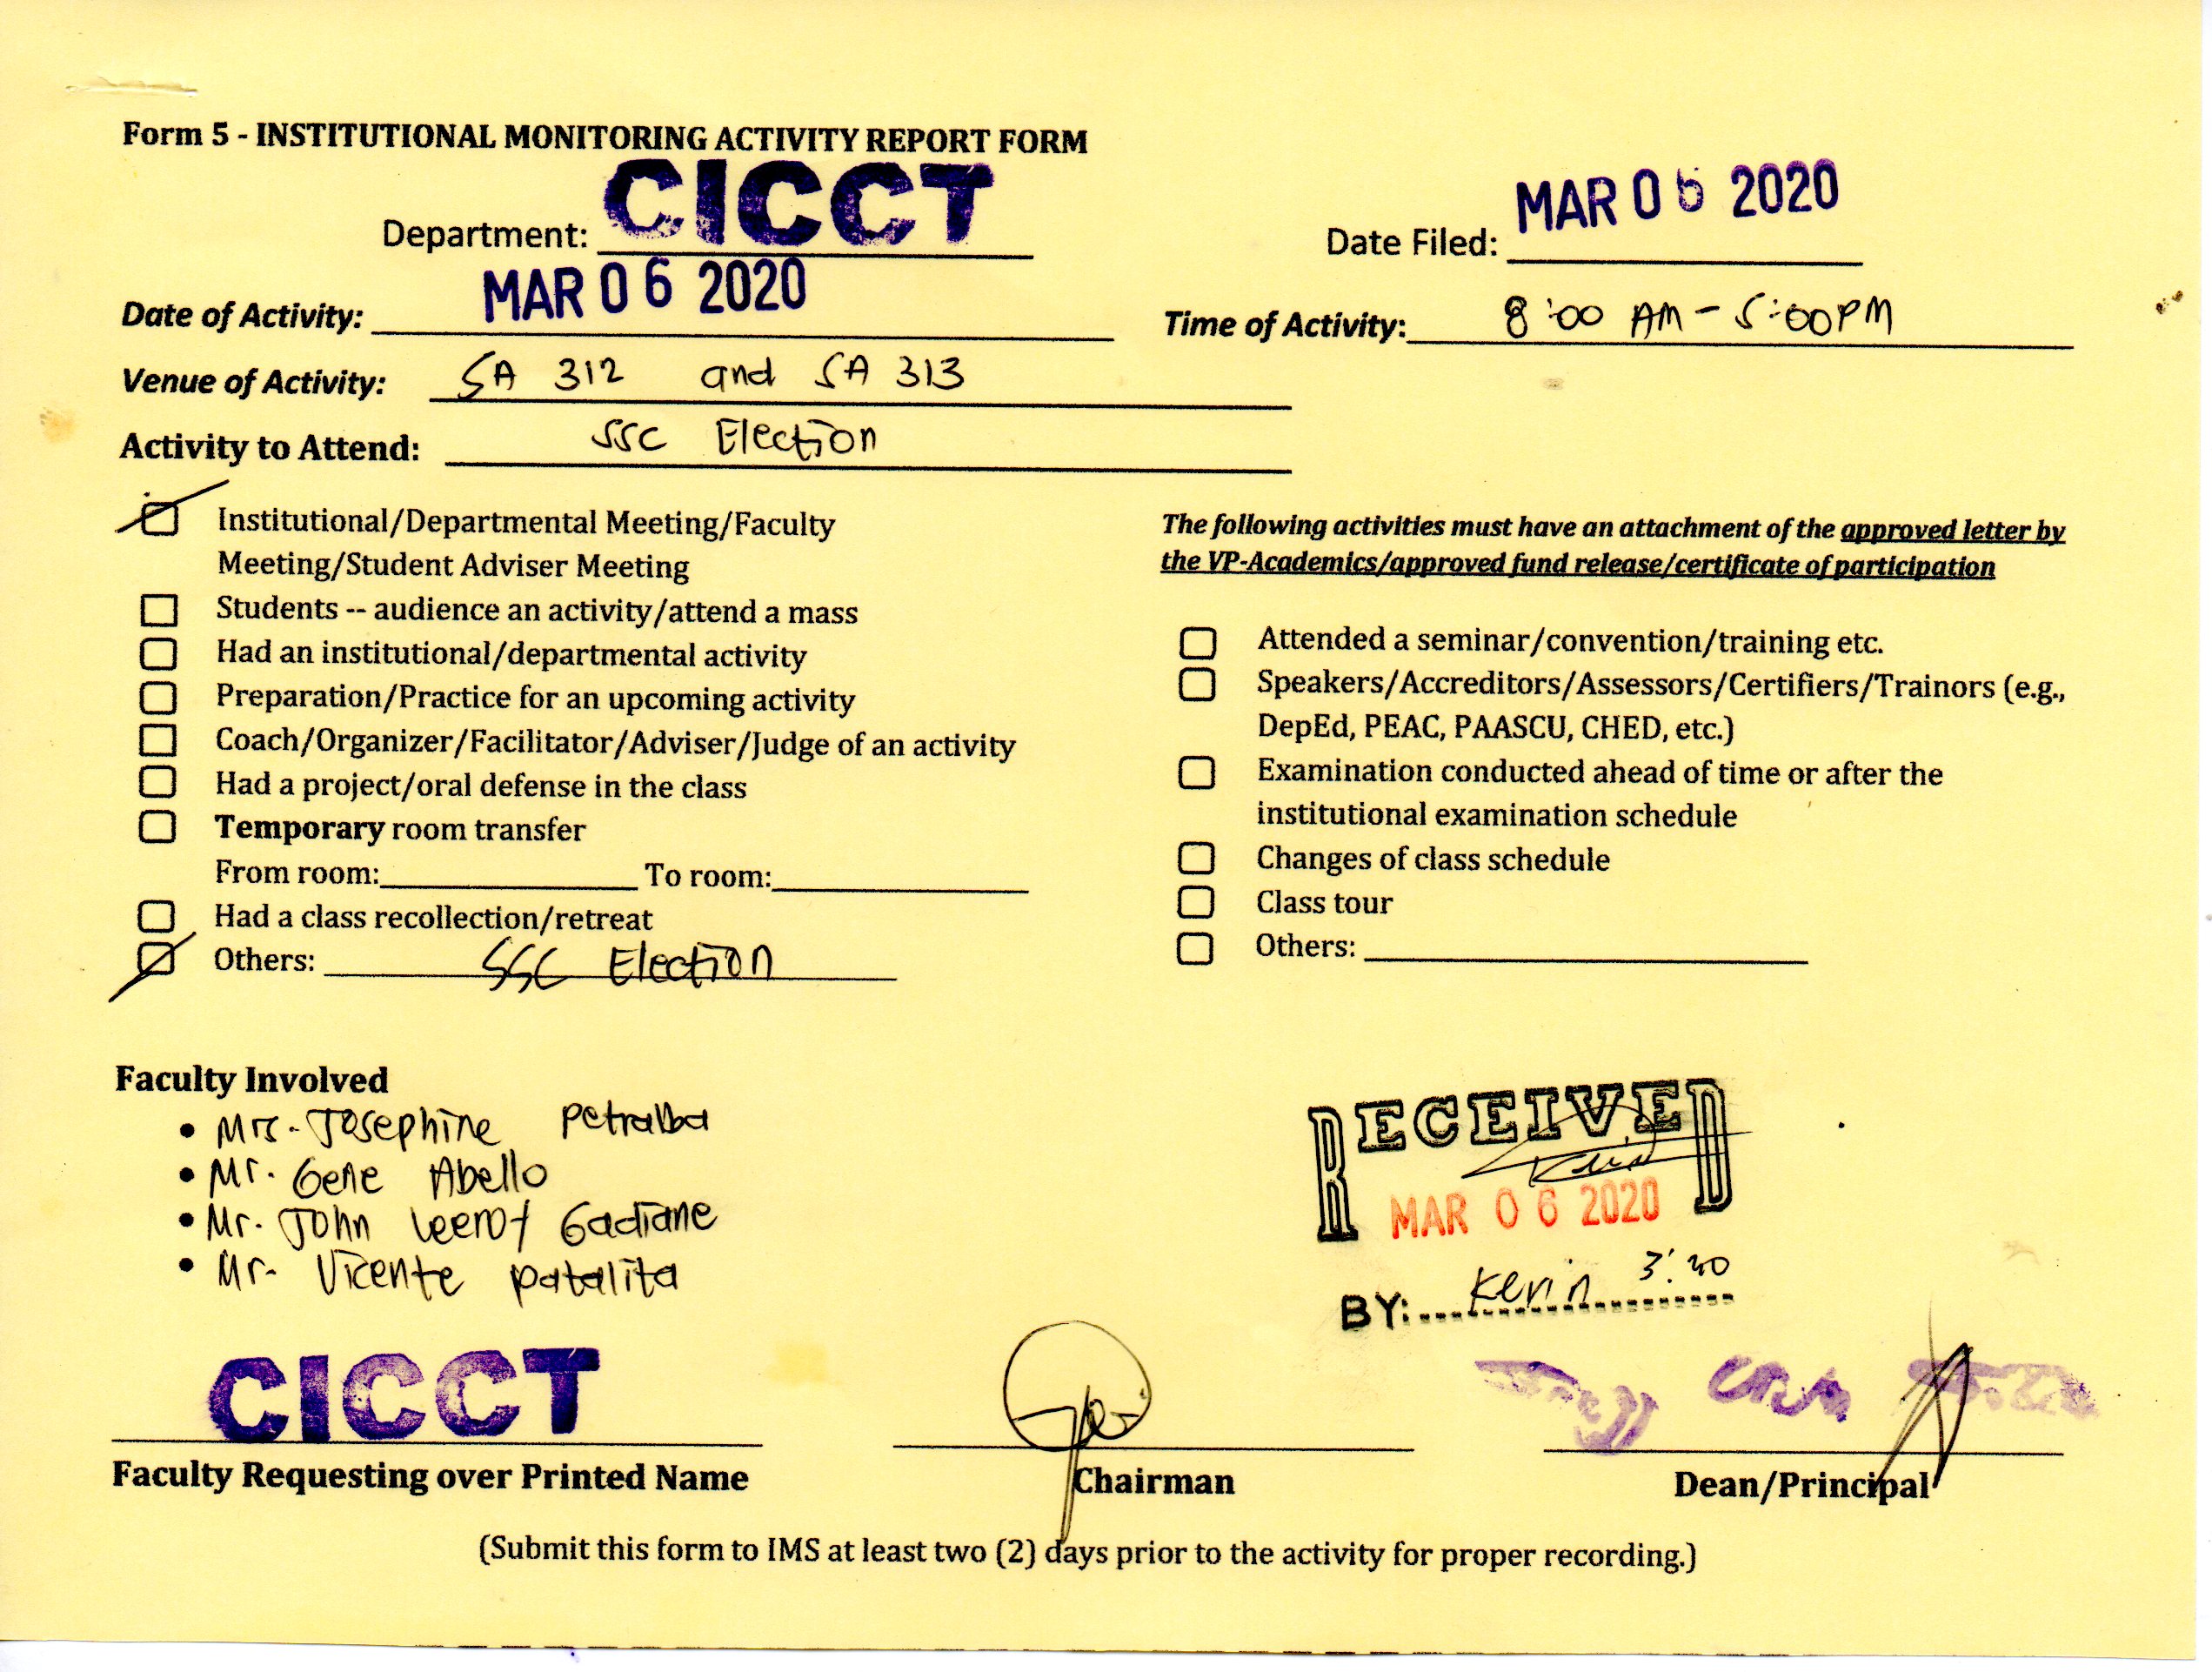 Form 5 - INSTITUTIONAL MONITORING ACTIVITY REPORT FORM
Department: CICCT
Date Filed: MAR 06 2020
Date of Activity: MAR 06 2020
Time of Activity: 8:00 AM - 5:00 PM
Venue of Activity: SA 312 and SA 313
Activity to Attend: SSC Election
Institutional/Departmental Meeting/Faculty
Meeting/Student Adviser Meeting
Students -- audience an activity/attend a mass
Had an institutional/departmental activity
Preparation/Practice for an upcoming activity
Coach/Organizer/Facilitator/Adviser/Judge of an activity
Had a project/oral defense in the class
Temporary room transfer
From room: To room:
Had a class recollection/retreat
Others: SSC Election
The following activities must have an attachment of the approved letter by
the VP-Academics/approved fund release/certificate of participation
Attended a seminar/convention/training etc.
Speakers/Accreditors/Assessors/Certifiers/Trainors (e.g.,
DepEd, PEAC, PAASCU, CHED, etc.)
Examination conducted ahead of time or after the
institutional examination schedule
Changes of class schedule
Class tour
Others:
Faculty Involved
• Mrs. Josephine Petralba
• Mr. Gene Abello
• Mr. John Leeroy Gadiane
• Mr. Vicente Patalita
RECEIVED
MAR 06 2020
BY: Kevin
CICCT
Faculty Requesting over Printed Name
Chairman
Dean/Principal
(Submit this form to IMS at least two (2) days prior to the activity for proper recording.)